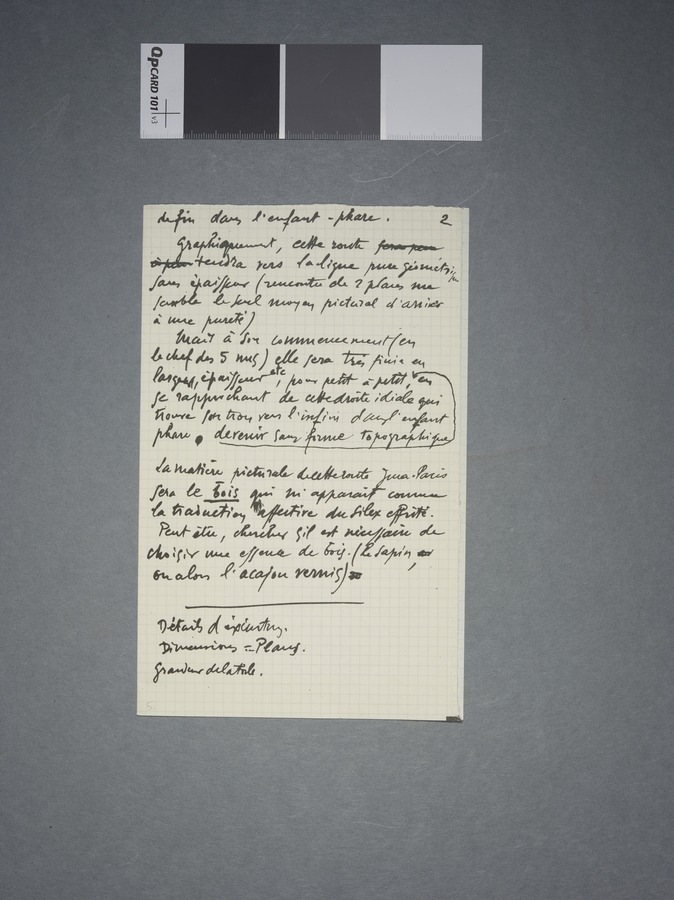 QPCARD 101 v3
de fin dans l'enfant-phare. 2
Graphiquement, cette route sera peu
à peu tendra vers la ligne pure géométrique
sans épaisseur (rencontre de 2 plans me
semble le seul moyen pictural d'arriver
à une pureté)
Mais à son commencement (en
le chef des 5 nus) elle sera très finie en
largeur, épaisseur etc, pour petit à petit, en
se rapprochant de cette droite idéale qui
trouve son trou vers l'infini dans l'enfant
phare, devenir sans forme topographique
La matière picturale de cette route Jura-Paris
sera le bois qui m'apparait comme
la traduction affective du silex effrité.
Peut être, chercher s'il est nécessaire de
choisir une essence de bois. (Le sapin,
ou alors l'acajou vernis)
Détails d'exécution.
Dimensions = Plans.
Grandeur de la toile.
5.